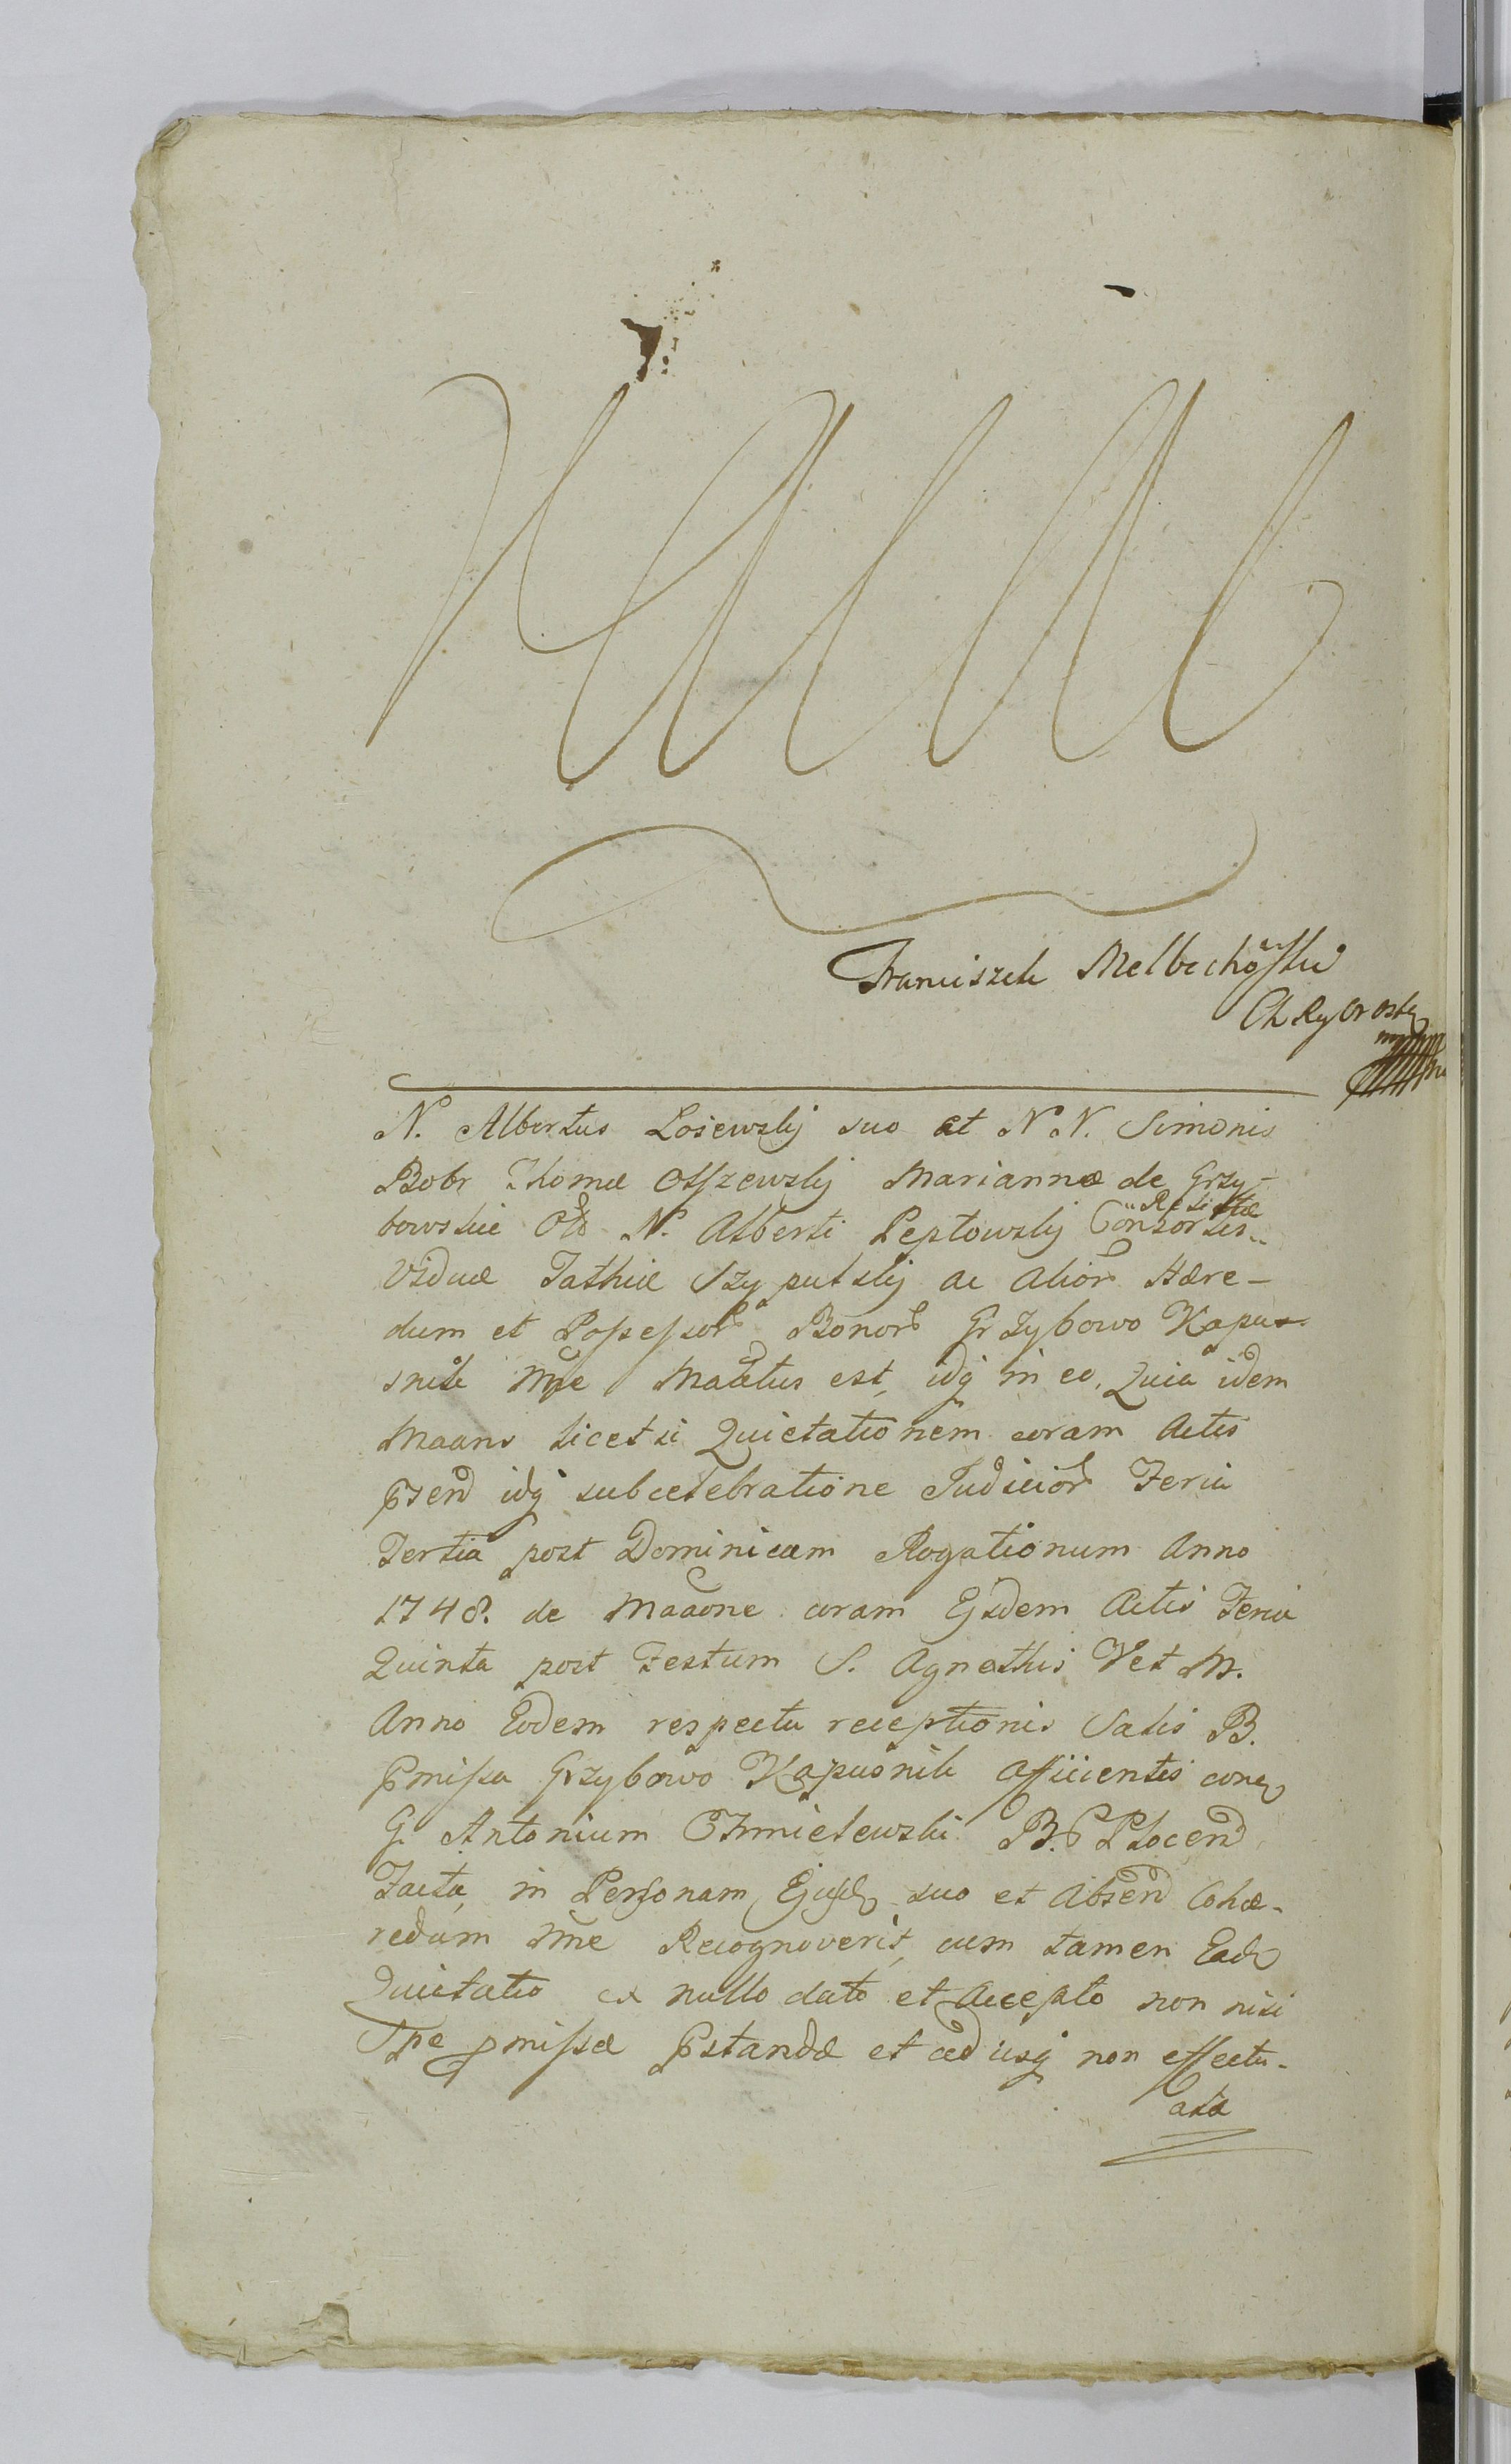 Franciszek
N. Albertus Łosiewskj suo et N N. Simonis
Bobr Thomæ Olszewskj Mariannæ de Grzy-
bowskie Olt N. Alberti Peptowskj Consortis
Relictæ
Viduæ Pathiæ Szyputskj ac Alior Hære-
dum et Possessor Bonor Grzybowo Kapus-
snik Mpe Maātus est, idq in eo, Quia idem
Maans licet si Quietationem coram Actis
psend idq sub celebratione Judicior Feria
Tertia post Dominicam Rogationum Anno
1748. de Maāone coram Ejsdem Actis Feria
Quinta post Festum S. Agnethis V et M.
Anno Eodem respectu receptionis Satis B.
pmissa Grzybowo Kapusnik afficientis
G. Antonium Chmielewski B. P Plocen
Facta, in Personam Ejusd suo et Absen Cohæ-
redum Nne Recognoverit, cum tamen Ead
Quietatio ex nullo dato et Accepto non nisi
Spe pmissæ pstandæ et ad usq non effectu-
atæ